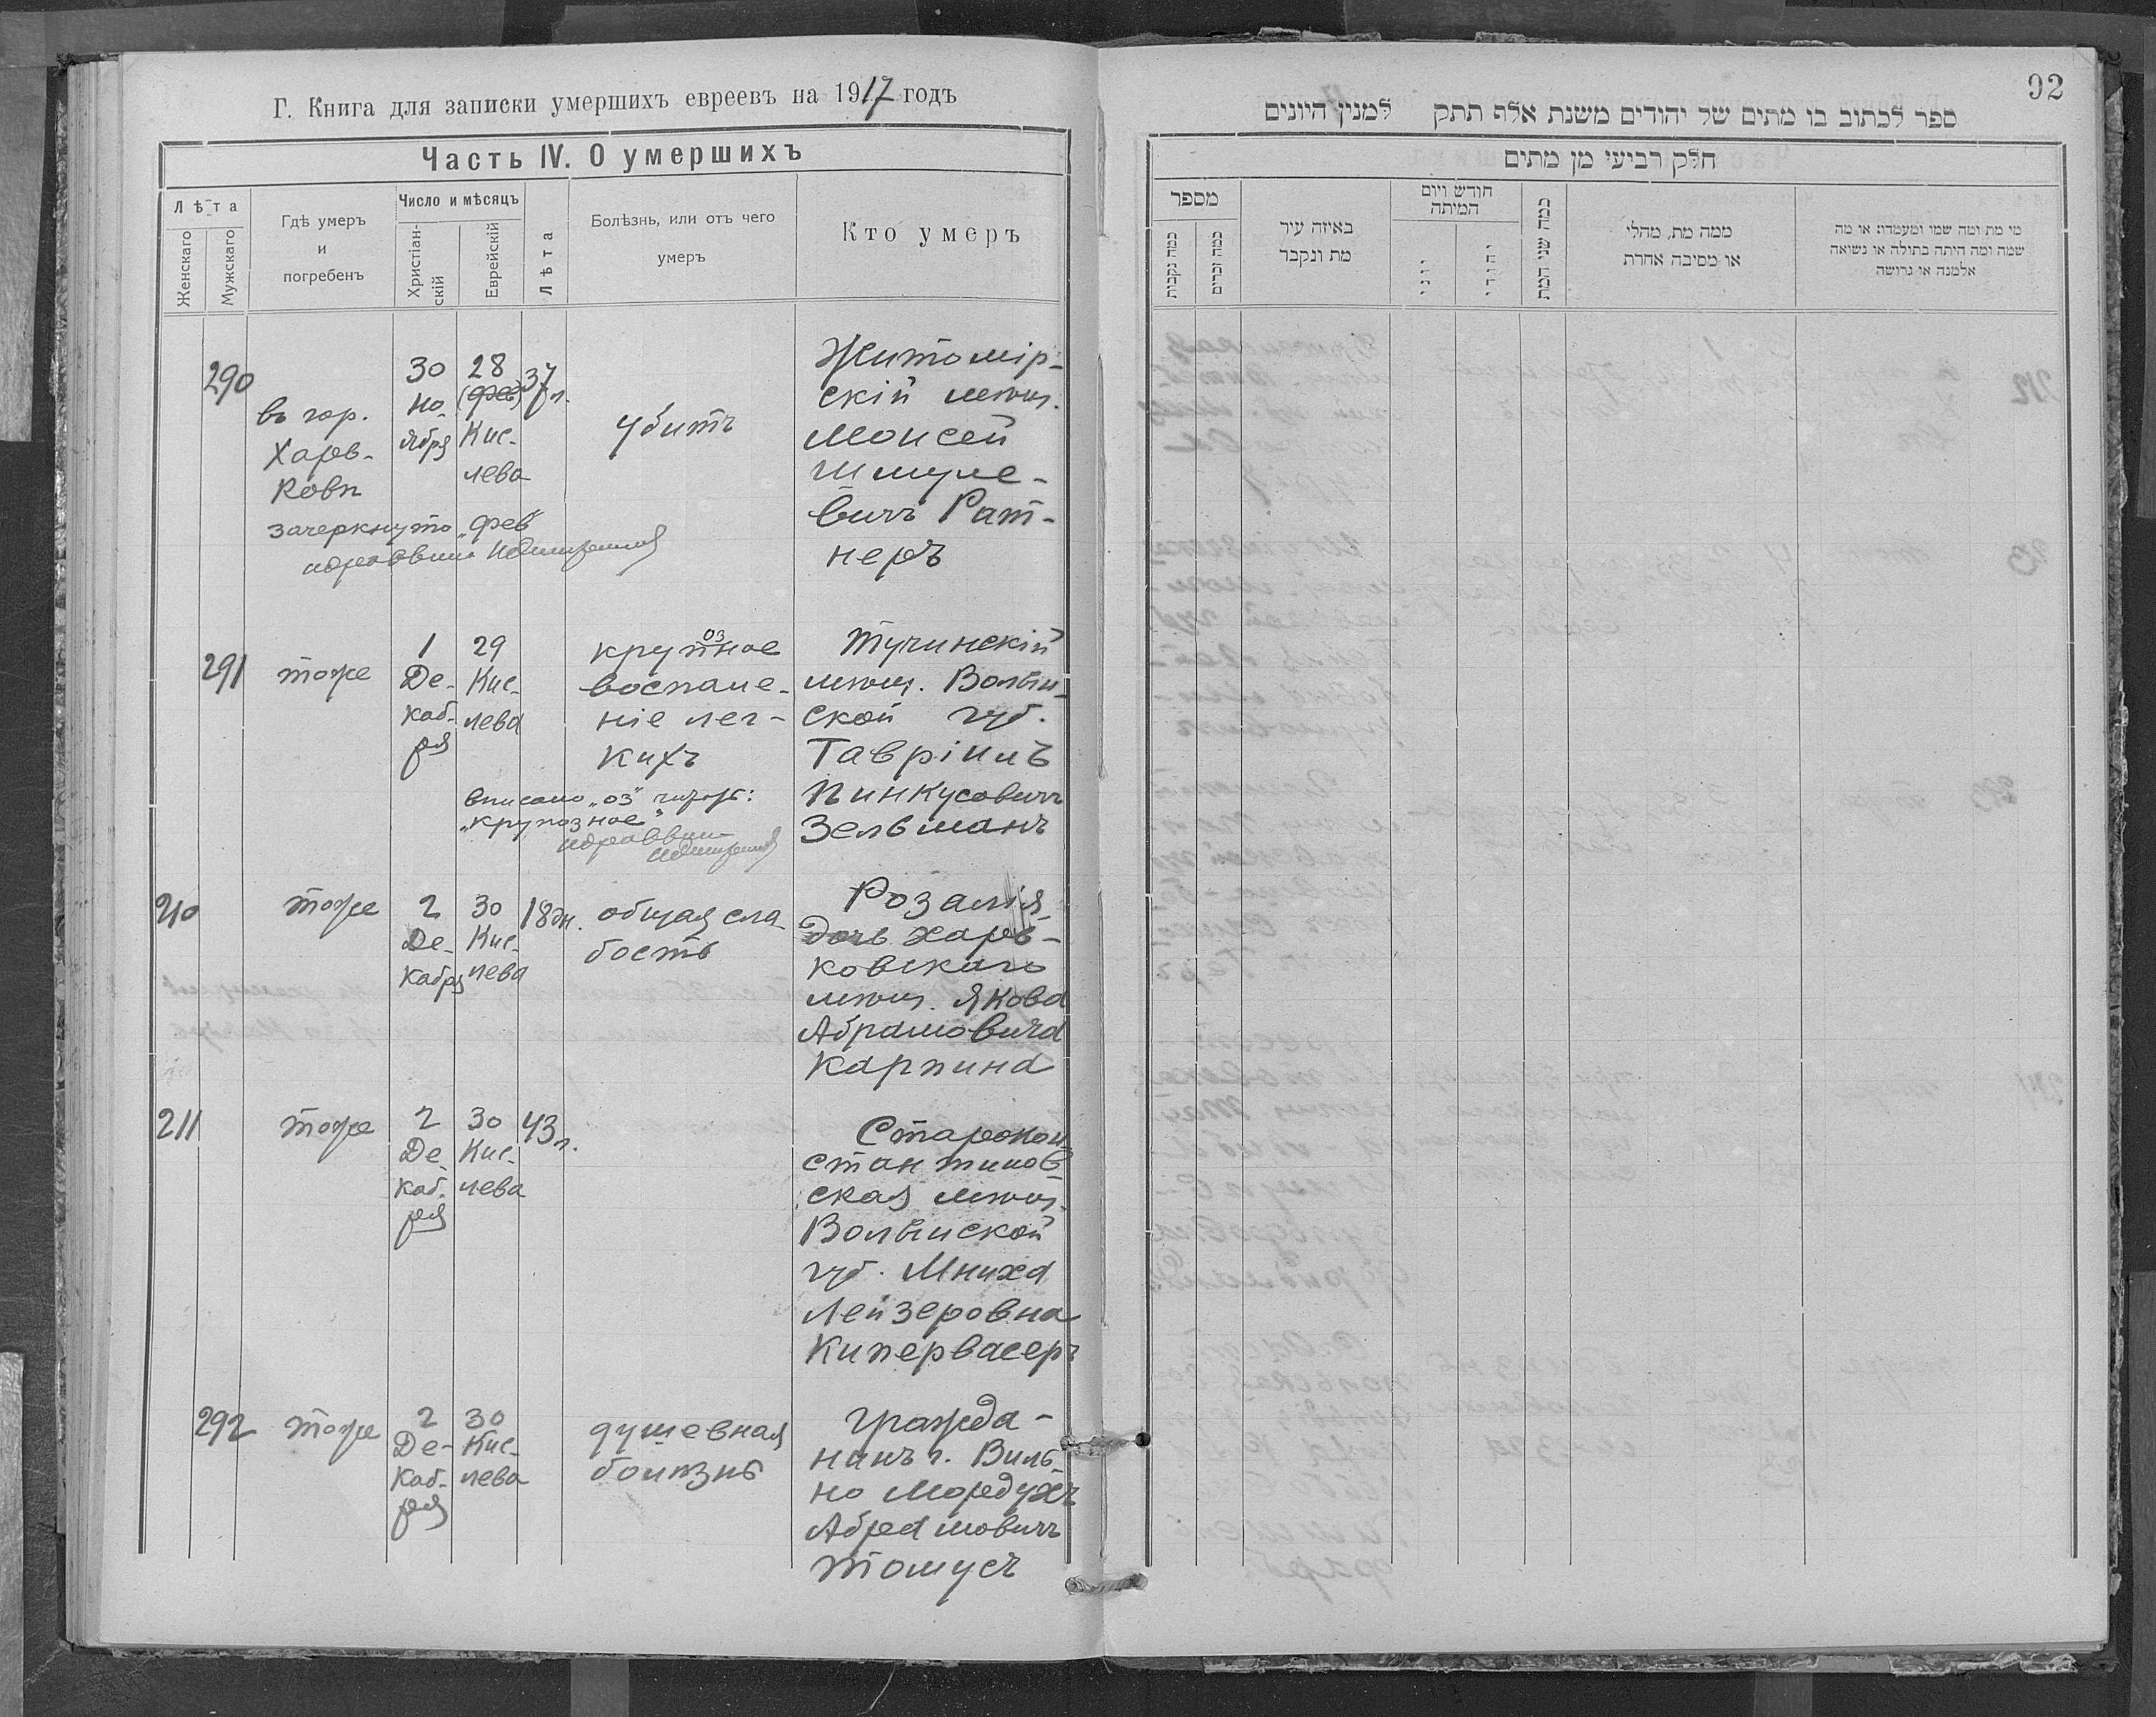 Г. Книга для записки умершихъ евреевъ на 1917 годъ
Часть IV. О умершихъ
Лѣта
Женскаго
Мужскаго
Гдѣ умеръ
и
погребенъ
Число и мѣсяцъ
Христіан-
скій
Еврейскій
Лѣта
Болѣзнь, или отъ чего
умеръ
Кто умеръ
290
въ гор.
Харь-
ковѣ
30
Но-
ября
28
(фев)
Кис-
лева
37 л.
убитъ
Житомір-
скій мѣщ.
Моисей
Шмуле-
вичъ Рат-
неръ
зачеркнуто „фев"
291
тоже
1
Де-
каб-
ря
29
Кис-
лева
оз
крупное
воспале-
ніе лег-
кихъ
вписано „оз"
„крупозное"
Тучинскій
мѣщ. Волын-
ской губ.
Тавріилъ
Пинкусовичъ
Зельманъ
210
тоже
2
Де-
кабря
30
Кис-
лева
18 дн.
общая сла-
бость
Розалія
дочь Харь-
ковскаго
мѣщ. Якова
Абрамовича
Карпина
211
тоже
2
Де-
каб-
ря
30
Кис-
лева
43 л.
Старокон-
стантинов-
ская мѣщ.
Волынской
губ. Мниха
Лейзеровна
Кипервасеръ
292
тоже
2
Де-
каб-
ря
30
Кис-
лева
душевная
болѣзнь
гражда-
нинъ г. Виль-
но Мордухъ
Абрамовичъ
Томусъ
92
ספר לכתוב בו מתים של יהודים משנת אלף תתק למנין היונים
חלק רביעי מן מתים
מספר
כמה נקבות
כמה זכרים
באיזה עיר
מת ונקבר
חודש ויום
המיתה
יוני
יהודי
כמה שני המת
ממה מת, מחלי
או מסיבה אחרת
מי מת ומה שמו ומעמדו: או מה
שמה ומה היתה בתולה או נשואה
אלמנה או גרושה